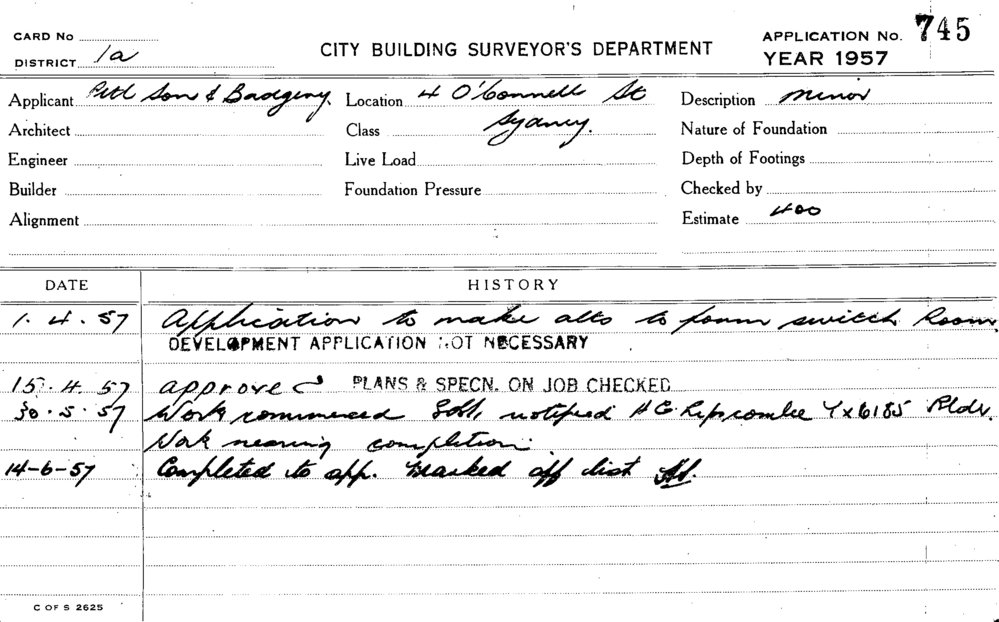 CARD No
DISTRICT 1a
CITY BUILDING SURVEYOR'S DEPARTMENT
APPLICATION No. 745
YEAR 1957
Applicant Son & Badgery. Location 4 O'Connell St Description minor
Architect Class Sydney. Nature of Foundation
Engineer Live Load Depth of Footings
Builder Foundation Pressure Checked by
Alignment Estimate 400
DATE HISTORY
1. 4. 57 Application to make alts to form switch Room.
DEVELOPMENT APPLICATION NOT NECESSARY
15. 4. 57 approved PLANS & SPECN. ON JOB CHECKED
30. 5. 57 Work commenced notified H G Lipscombe Bldr.
Work nearing completion.
14-6-57 Completed to app. Marked off list
C OF S 2625